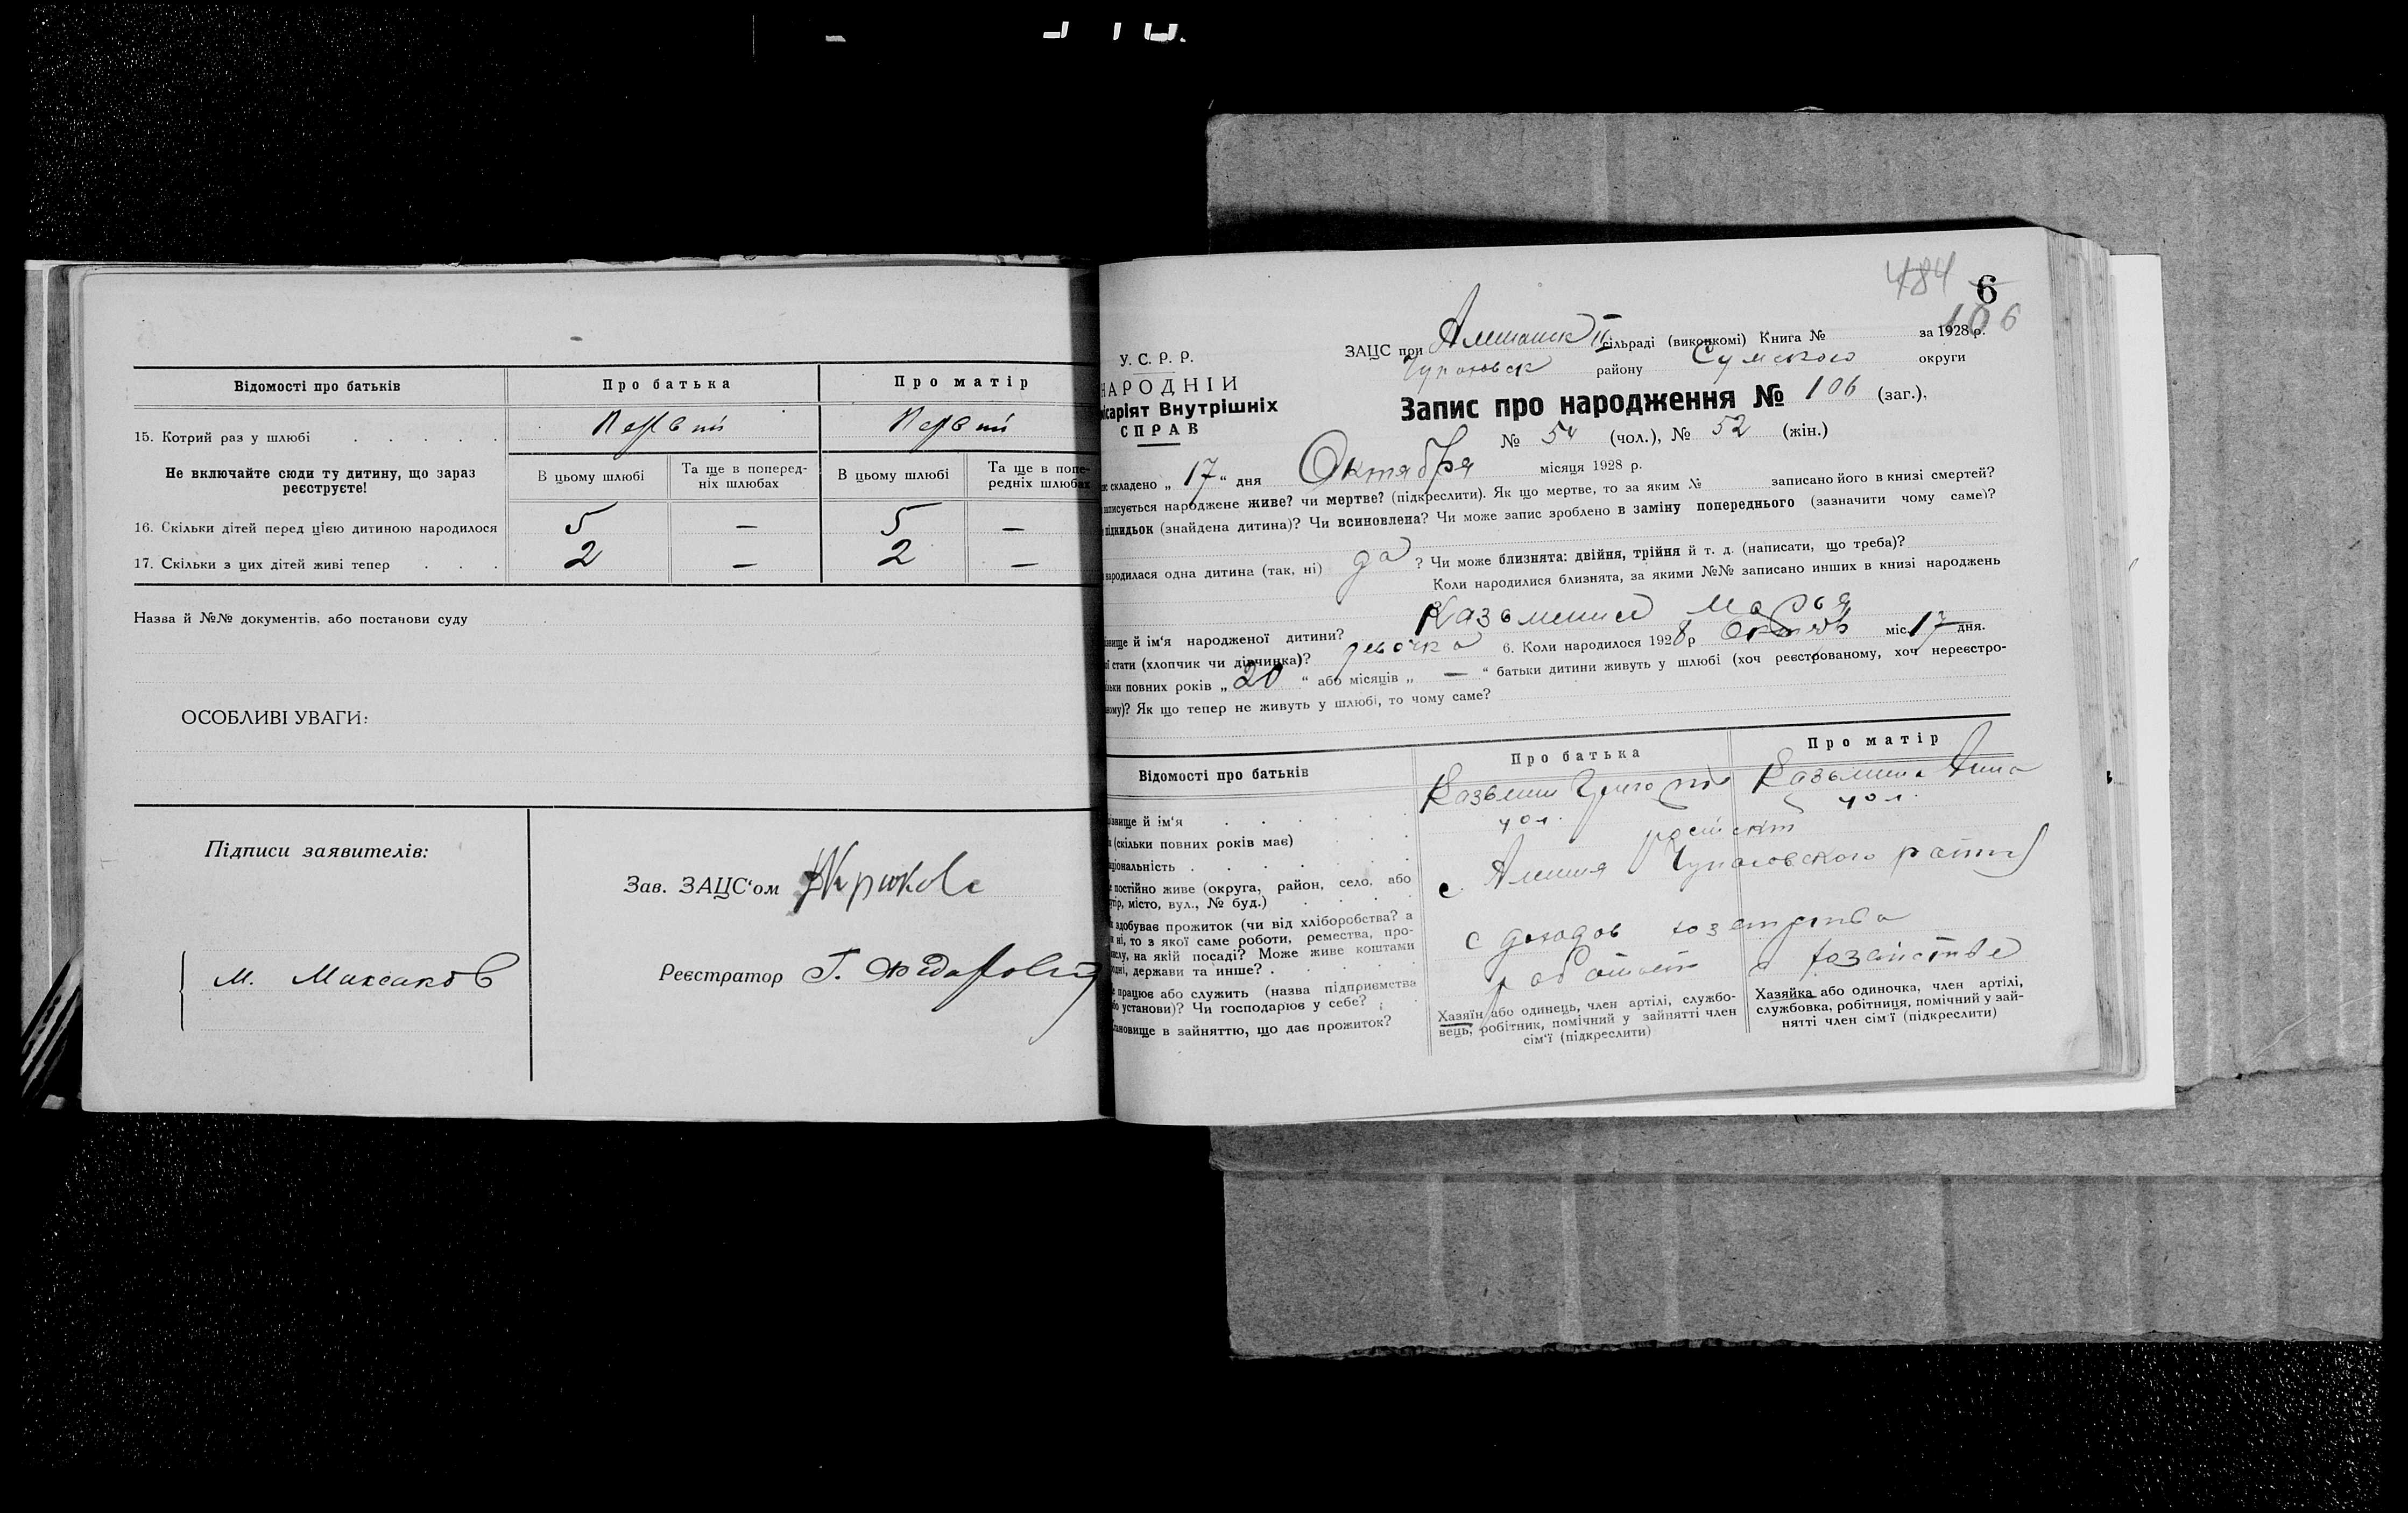 Відомості про батьків
Про батька
Про матір
15. Котрий раз у шлюбі
Первий
Первий
Не включайте сюди ту дитину, що зараз реєструєте!
В цьому шлюбі
Та ще в попередніх шлюбах
В цьому шлюбі
Та ще в попередніх шлюбах
16. Скільки дітей перед цією дитиною народилося
5 — 5 —
17. Скільки з цих дітей живі тепер
2 — 2 —
Назва й №№ документів, або постанови суду
ОСОБЛИВІ УВАГИ:
Підписи заявителів:
М. Максаков
Зав. ЗАЦС'ом
Реєстратор Г.
484
6
106
У. С. Р. Р.
НАРОДНІЙ
ісаріят Внутрішніх
СПРАВ
ЗАЦС при сільраді (виконкомі) Книга № за 1928 р.
району Сумского округи
Запис про народження № 106 (заг.),
№ 54 (чол.), № 52 (жін.)
складено „ 17 “ дня Октября місяця 1928 р.
записується народжене живе? чи мертве? (підкреслити). Як що мертве, то за яким № записано його в книзі смертей?
підкидьок (знайдена дитина)? Чи всиновлена? Чи може запис зроблено в заміну попереднього (зазначити чому саме)?
народилася одна дитина (так, ні) да ? Чи може близнята: двійня, трійня й т. д. (написати, що треба)?
Коли народилися близнята, за якими №№ записано инших в книзі народжень
звище й ім'я народженої дитини? Марья
стати (хлопчик чи дівчинка)? девочка 6. Коли народилося 1928 р міс. 17 дня.
повних років „ 20 “ або місяців „ — “ батьки дитини живуть у шлюбі (хоч реєстрованому, хоч нереєстро-
ному)? Як що тепер не живуть у шлюбі, то чому саме?
Відомості про батьків
Про батька
Про матір
звище й ім'я
Казьмин Григорий
Казьмина Анна
(скільки повних років має)
40 л.
40 л.
ціональність
постійно живе (округа, район, село, або
хутір, місто, вул., № буд.)
с.
здобуває прожиток (чи від хліборобства? а
ні, то з якої саме роботи, ремества, про-
мислу, на якій посаді? Може живе коштами
родні, держави та инше?
с доходов
працює або служить (назва підприємства
або установи)? Чи господарює у себе?
работает в хозяйстве
становище в зайняттю, що дає прожиток?
Хазяїн або одинець, член артілі, службо-
вець, робітник, помічний у зайнятті член
сім'ї (підкреслити)
Хазяйка або одиночка, член артілі,
службовка, робітниця, помічний у зай-
нятті член сім'ї (підкреслити)